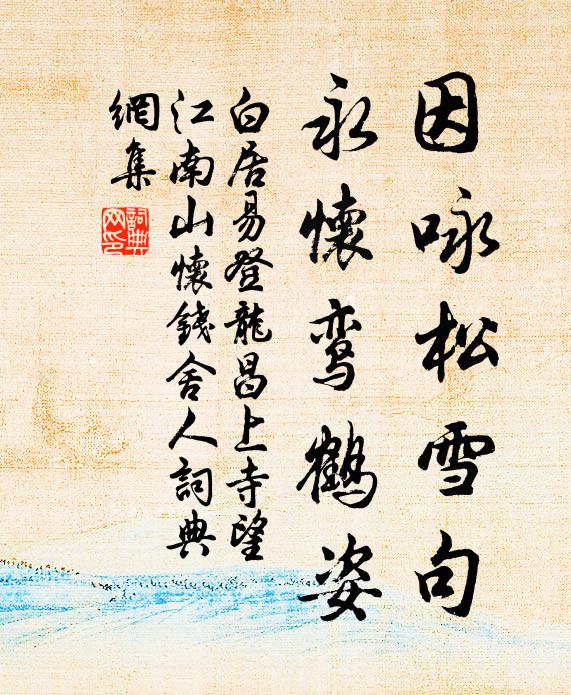 因咏松雪句
永懷鸾鶴姿
白居易登龍昌上寺望
江南山懷錢舍人詞典
網集
詞典
网印